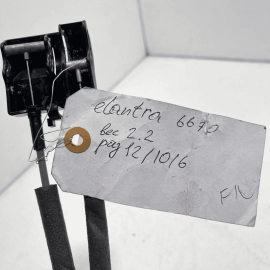 elantra 6670
bec 2.2
pag 12/10/6
F/L